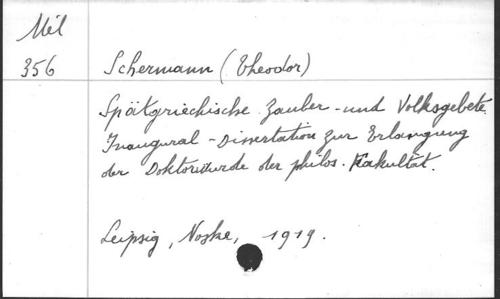 Mél
356
Schermann (Theodor)
Spätgriechische Zauber - und Volksgebete.
Inaugural - Dissertation zur Erlangung
der Doktorwürde der philos. Fakultät.
Leipzig, Noske, 1919.